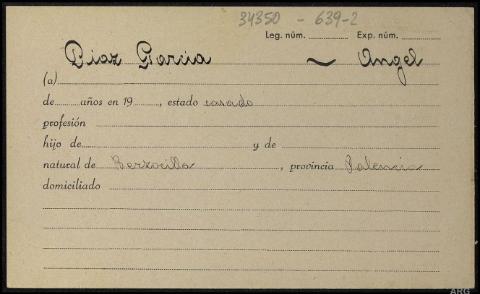 34350 - 639-2
Leg. núm. Exp. núm.
Diaz Garcia ~ Angel
(a)
de años en 19 , estado casado
profesión
hijo de y de
natural de Berzocilla , provincia Palencia
domiciliado
ARG